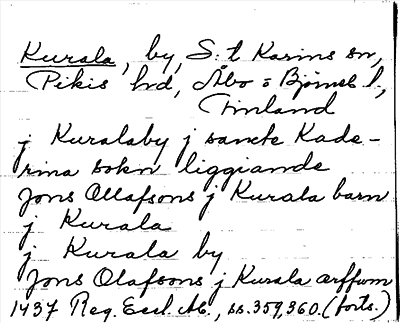 Kurala, by, S:t Karins sn,
Pikis hd, Åbo o Björneb. l,
Finland
j Kuralaby j sancte Kade-
rina sokn liggiande
Jons Ollafsons j Kurala barn
j Kurala
j Kurala by
Jons Olafsons j Kurala arffwm
1437 Reg. Eccl. Ab., ss. 359, 360. (forts.)